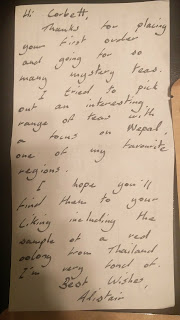 Hi Corbett,
Thanks for placing
your first order
and going for so
many mystery teas.
I tried to pick
out an interesting
range of teas with
a focus on Nepal,
one of my favourite
regions.
I hope you'll
find them to your
liking including the
sample of a red
oolong from Thailand
I'm very fond of.
Best Wishes,
Alistair